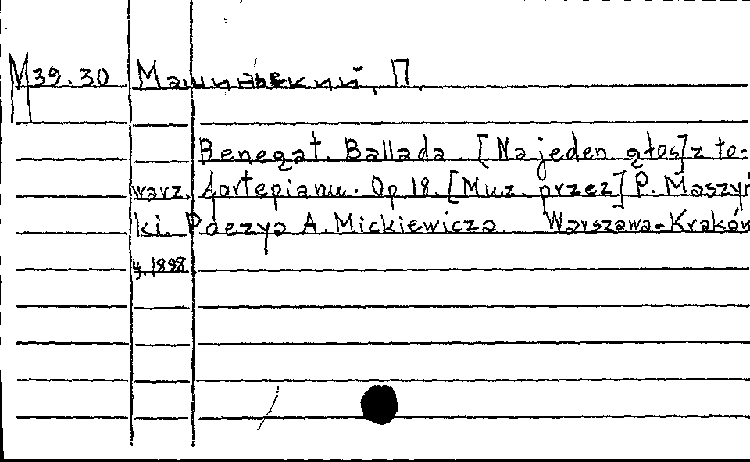 М39.30 Машиньский, П.
Renegat. Ballada. [Na jeden głos] z to-
warz. fortepianu. Op. 18. [Muz. przez] P. Maszyń
ki. Poezya A. Mickiewicza. Warszawa-Kraków
1898